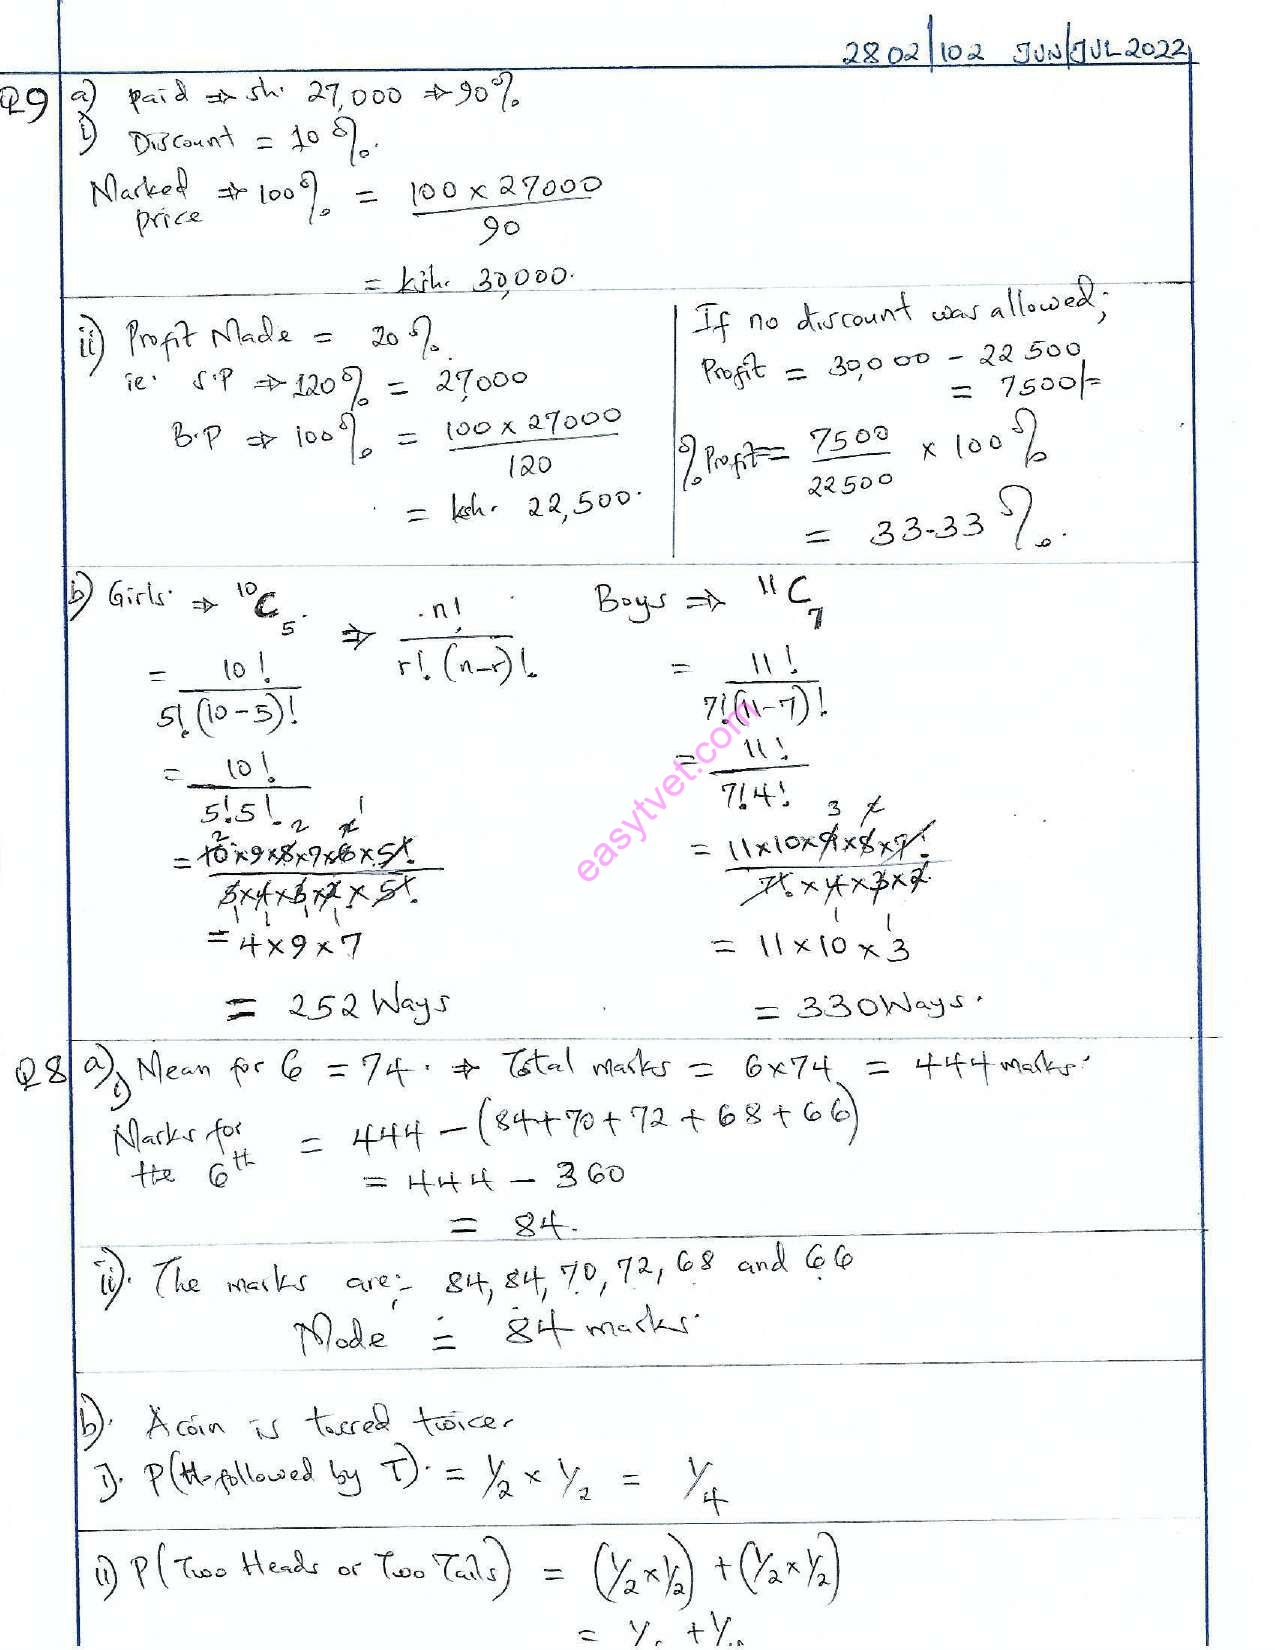 2802/102 JUN/JUL 2022
Q9 a) paid ⇒ sh. 27,000 ⇒ 90%
i) Discount = 10%.
Marked price ⇒ 100% = 100 x 27000 / 90
= ksh. 30,000.
ii) Profit Made = 20%.
ie. S.P ⇒ 120% = 27,000
B.P ⇒ 100% = 100 x 27000 / 120
= ksh. 22,500.
If no discount was allowed;
Profit = 30,000 - 22500
= 7500/=
% Profit = 7500 / 22500 x 100%
= 33.33%.
b) Girls. ⇒ ¹⁰C₅. ⇒ n! / r!(n-r)!
= 10! / 5!(10-5)!
= 10! / 5!5!
2 2 2 1
= 10x9x8x7x6x5! / 5x4x3x2x5!
1 1 1 1
= 4x9x7
= 252 Ways
Boys ⇒ ¹¹C₇
= 11! / 7!(11-7)!
= 11! / 7!4!
3 2
= 11x10x9x8x7! / 7!x4x3x2
1 1
= 11x10x3
= 330 Ways.
easytvet.com
Q8 a) i) Mean for 6 = 74. ⇒ Total marks = 6x74 = 444 marks.
Marks for the 6th = 444 - (84+70+72+68+66)
= 444 - 360
= 84.
ii). The marks are:- 84, 84, 70, 72, 68 and 66
Mode = 84 marks.
b). A coin is tossed twice.
i). P(H followed by T). = 1/2 x 1/2 = 1/4
ii) P(Two Heads or Two Tails) = (1/2 x 1/2) + (1/2 x 1/2)